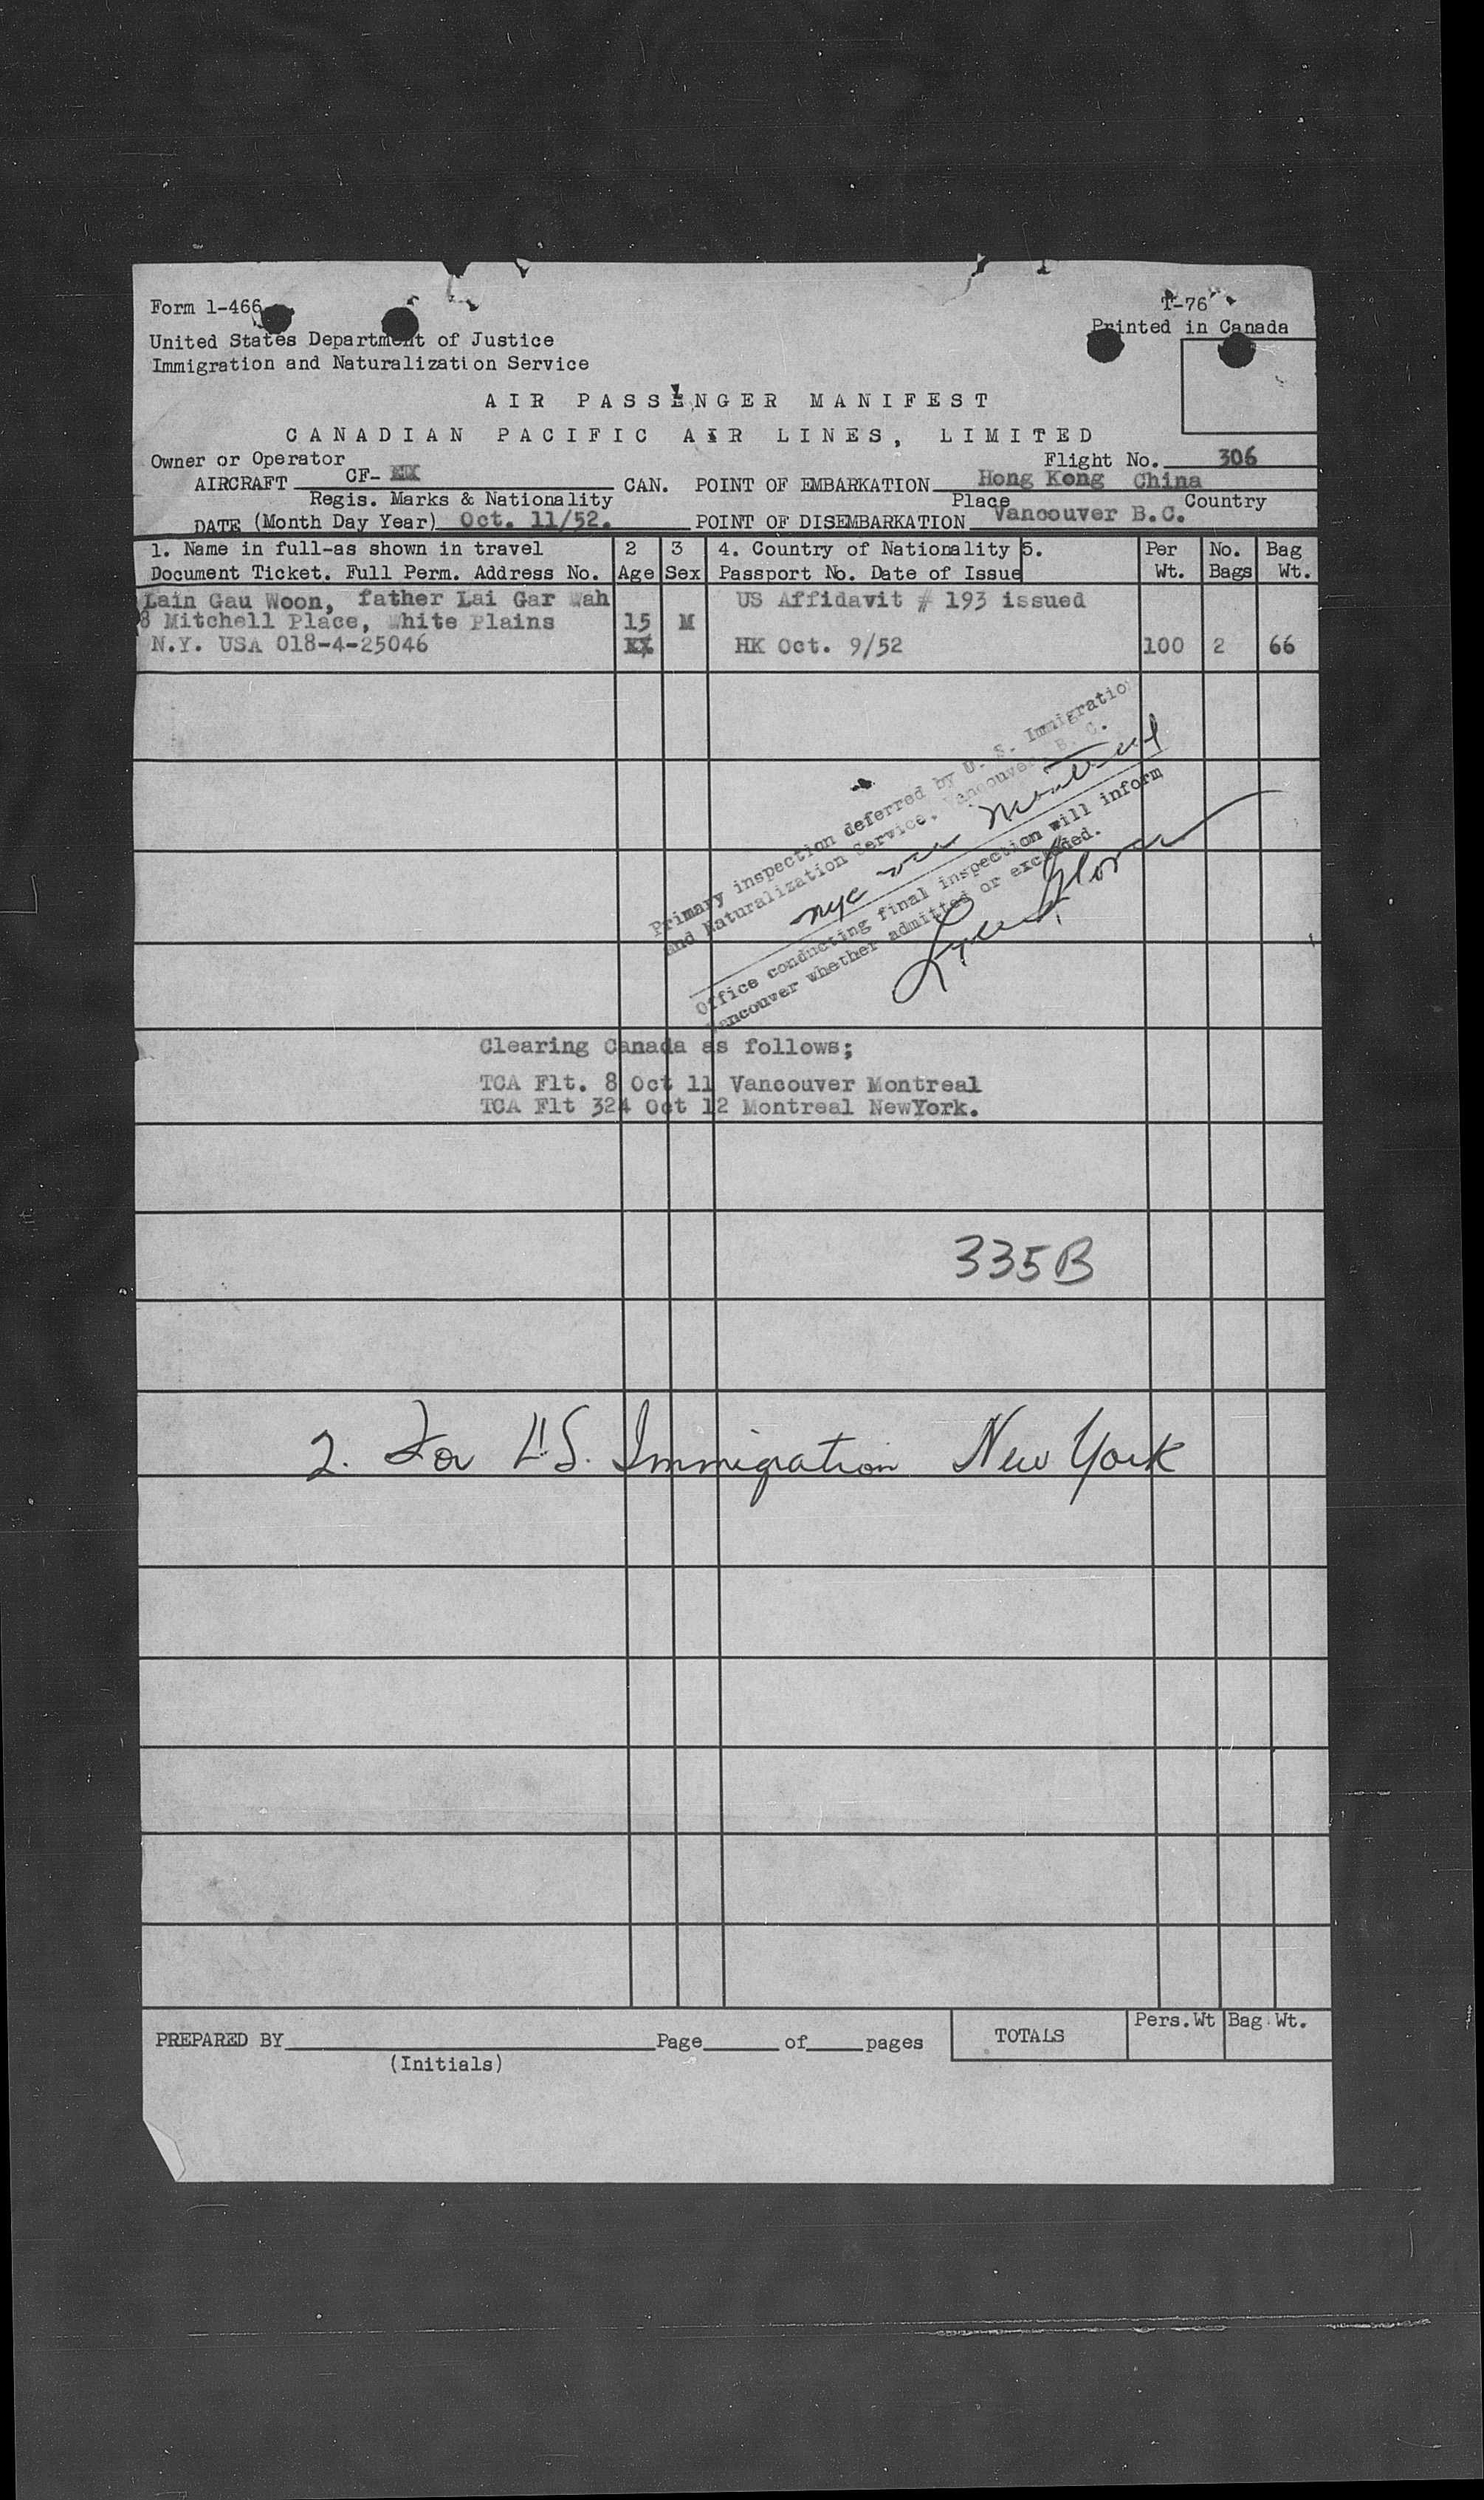 Form 1-466
T-76
United States Department of Justice
Printed in Canada
Immigration and Naturalization Service
AIR PASSENGER MANIFEST
CANADIAN PACIFIC AIR LINES, LIMITED
Owner or Operator
Flight No. 306
AIRCRAFT CF- CAN. POINT OF EMBARKATION Hong Kong China
Regis. Marks & Nationality Place Country
DATE (Month Day Year) Oct. 11/52. POINT OF DISEMBARKATION Vancouver B.C.
1. Name in full-as shown in travel 2 3 4. Country of Nationality 5. Per No. Bag
Document Ticket. Full Perm. Address No. Age Sex Passport No. Date of Issue Wt. Bags Wt.
Lain Gau Woon, father Lai Gar Wah US Affidavit # 193 issued
8 Mitchell Place, White Plains 15 M
N.Y. USA 018-4-25046 HK Oct. 9/52 100 2 66
Primary inspection deferred by U. S. Immigration
and Naturalization Service, Vancouver, B. C.
nyc via Montreal
Office conducting final inspection will inform
Vancouver whether admitted or excluded.
Clearing Canada as follows;
TCA Flt. 8 Oct 11 Vancouver Montreal
TCA Flt 324 Oct 12 Montreal NewYork.
335B
2. For U.S. Immigration New York
PREPARED BY Page of pages TOTALS Pers.Wt Bag Wt.
(Initials)